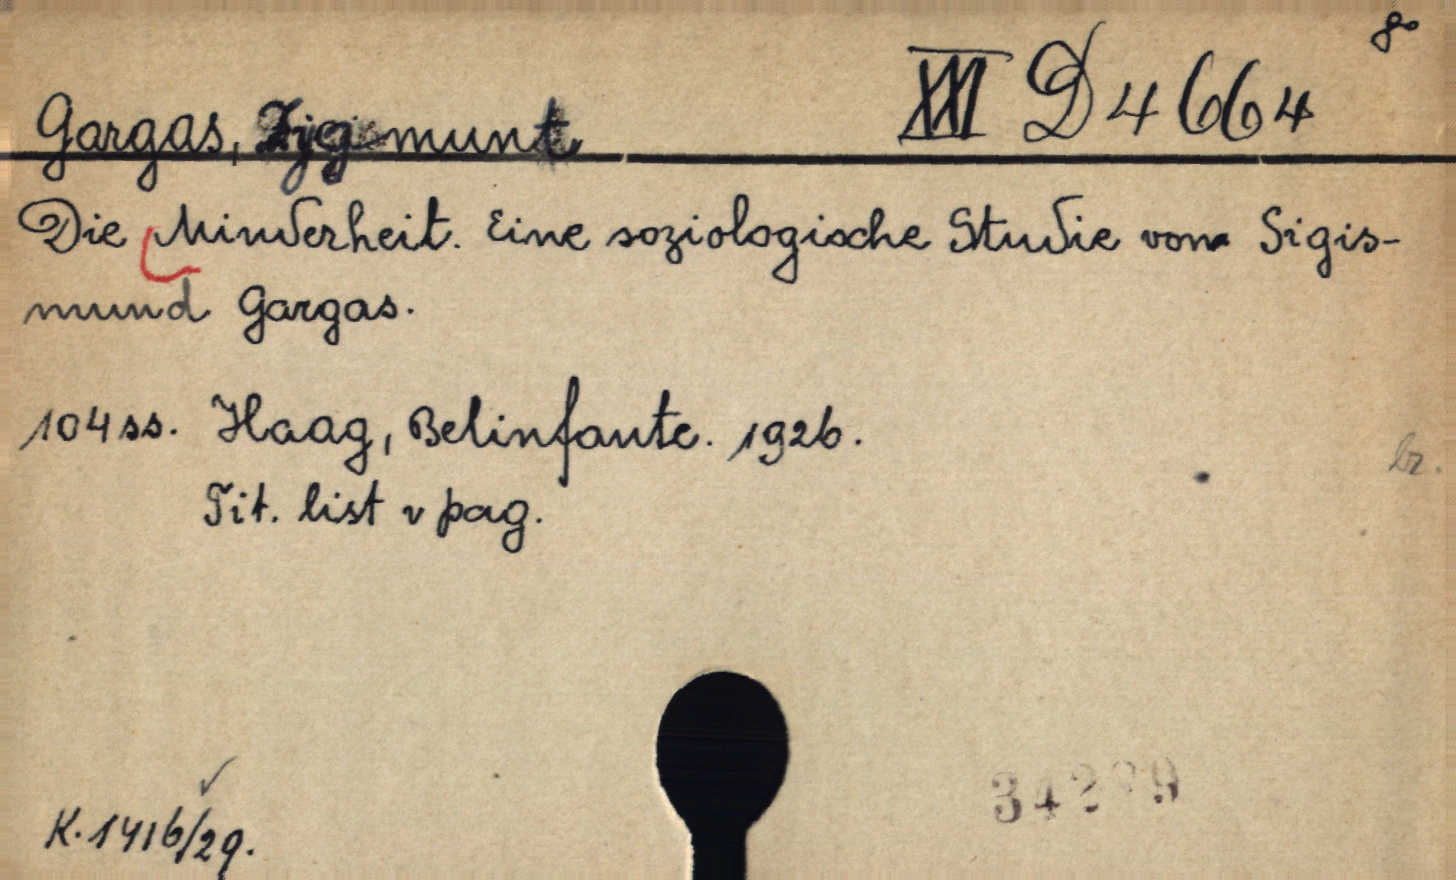 8°
XIII D 4664
Gargas, Zygmunt
Die Minderheit. Eine soziologische Studie von Sigis-
mund Gargas.
104 ss. Haag, Belinfante. 1926.
br.
Tit. list v pag.
K. 1416/29.